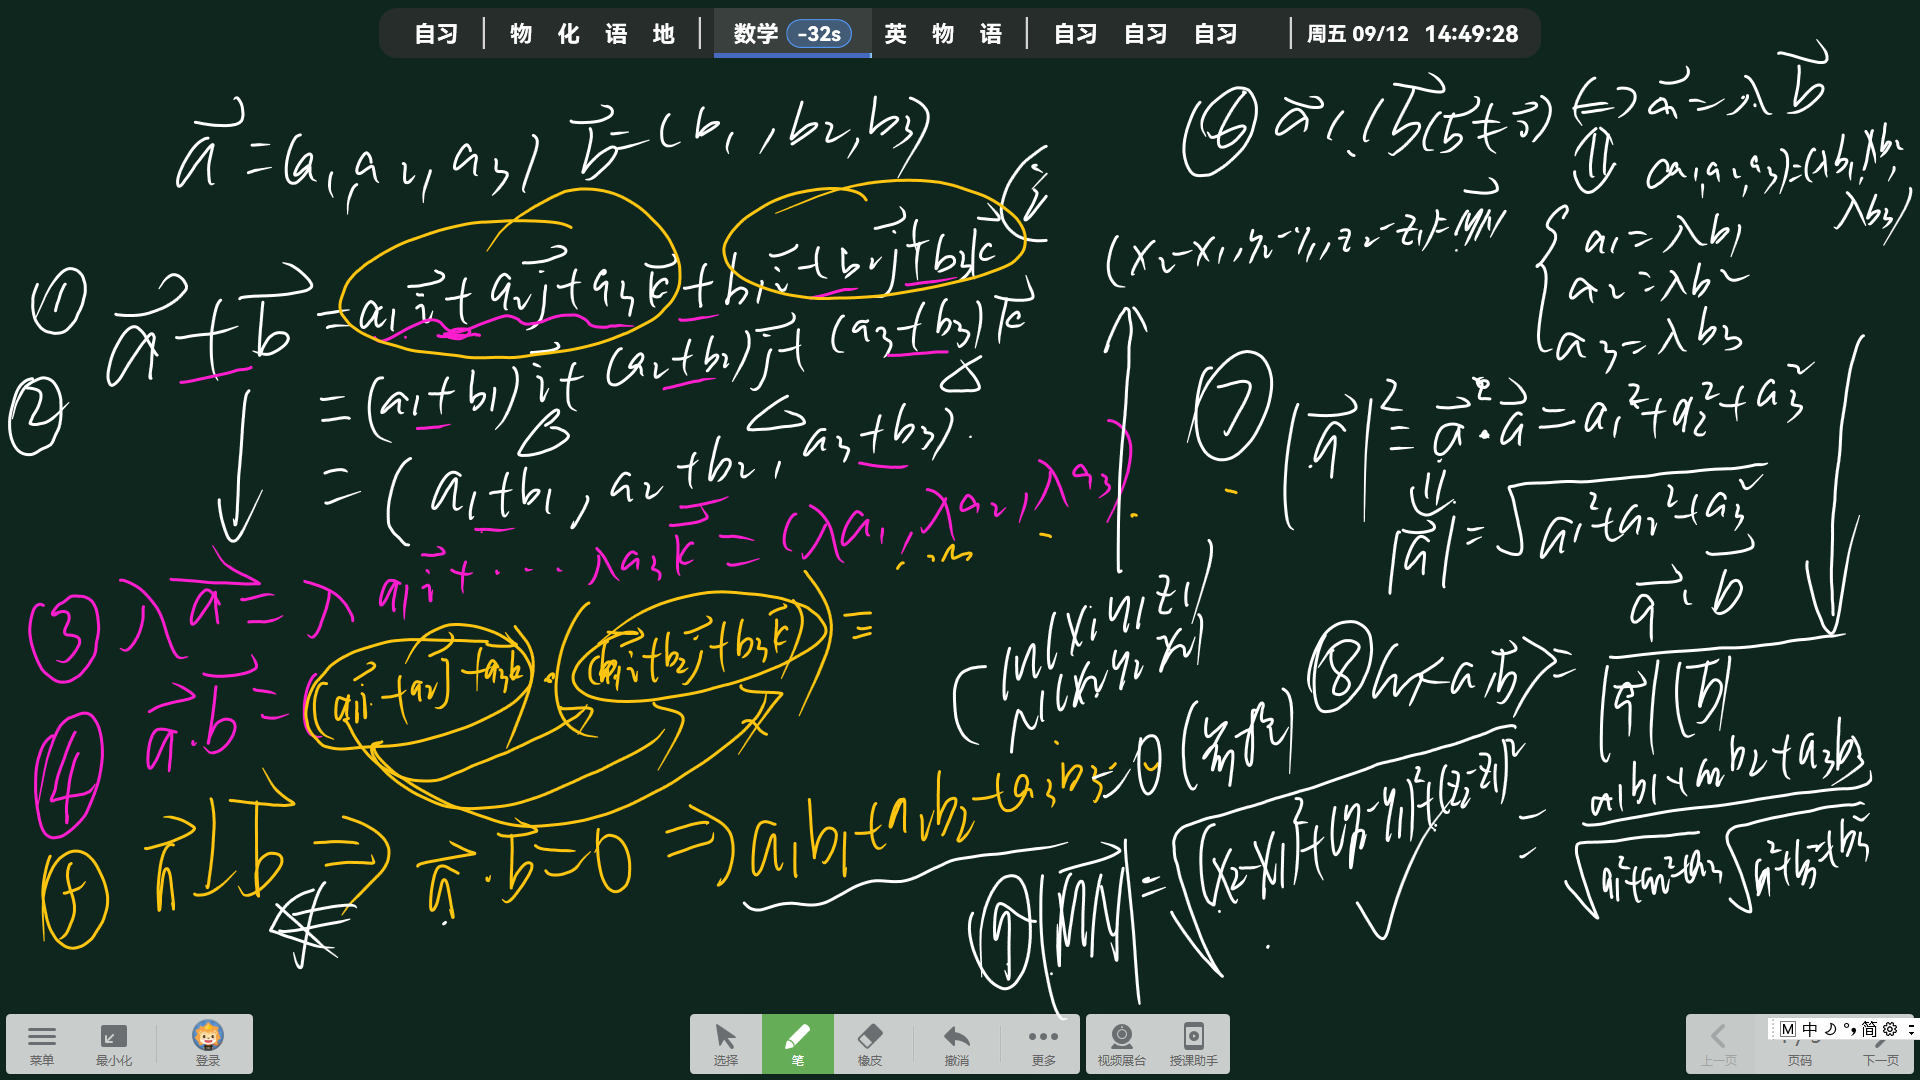 自习 | 物 化 语 地 | 数学 -32s 英 物 语 | 自习 自习 自习 | 周五 09/12 14:49:28
a⃗=(a₁,a₂,a₃) b⃗=(b₁,b₂,b₃)
① a⃗+b⃗ =a₁i⃗+a₂j⃗+a₃k⃗+b₁i⃗+b₂j⃗+b₃k⃗
② =(a₁+b₁)i⃗+(a₂+b₂)j⃗+(a₃+b₃)k⃗
=(a₁+b₁,a₂+b₂,a₃+b₃).
③ λa⃗=λa₁i⃗+⋯λa₃k⃗=(λa₁,λa₂,λa₃)
④ a⃗·b⃗=(a₁i⃗+a₂j⃗+a₃k)·(b₁i⃗+b₂j⃗+b₃k⃗)=
⑤ a⃗⊥b⃗ ⇒ a⃗·b⃗=0 ⇒ a₁b₁+a₂b₂+a₃b₃=0
⑥ a⃗//b⃗(b⃗≠0⃗) ⇔ a⃗=λb⃗
(a₁,a₂,a₃)=(λb₁,λb₂,λb₃)
(x₂-x₁,y₂-y₁,z₂-z₁)=MN⃗
a₁=λb₁
a₂=λb₂
a₃=λb₃
M(x₁y₁z₁)
N(x₂y₂z₂)
⑦ |a⃗|²=a⃗·a⃗=a₁²+a₂²+a₃²
|a⃗|=√(a₁²+a₂²+a₃²)
⑧ <a,b⃗>= a⃗·b⃗
|a⃗||b⃗|
= a₁b₁+a₂b₂+a₃b₃
√(a₁²+a₂²+a₃) √(b₁²+b₂²+b₃²)
⑨ |MN⃗|=√((x₂-x₁)²+(y₂-y₁)²+(z₂-z₁)²)
菜单 最小化 登录 选择 笔 橡皮 撤消 更多 视频展台 授课助手 上一页 页码 下一页
M 中 简